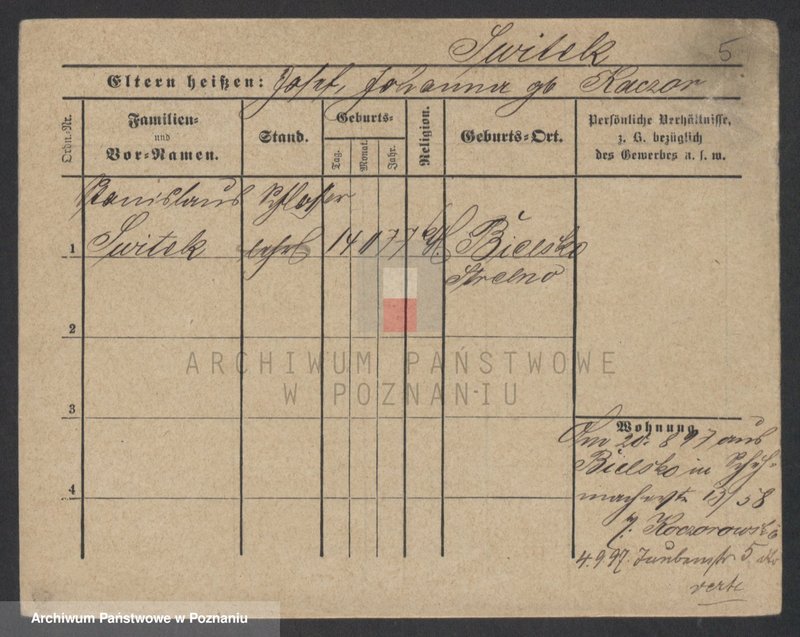 Switek 5
Eltern heißen: Josef, Johanna gb Kaczor
Ordn.-Nr.
Familien-
und
Vor-Namen.
Stand.
Geburts-
Tag.
Monat.
Jahr.
Religion.
Geburts-Ort.
Persönliche Verhältnisse,
z. B. bezüglich
des Gewerbes u. s. w.
Stanislaus Schlosser
1 Switek lehrl 14 77 kth. Bielsko
Strelno
2
3
4
Wohnung
Am 20. 8 97 aus
Bielsko in Schuh-
macherstr 15/58
J. Koczorowski
4.9.97. Taubenstr 5
verte
ARCHIWUM PAŃSTWOWE
W POZNANIU
Archiwum Państwowe w Poznaniu